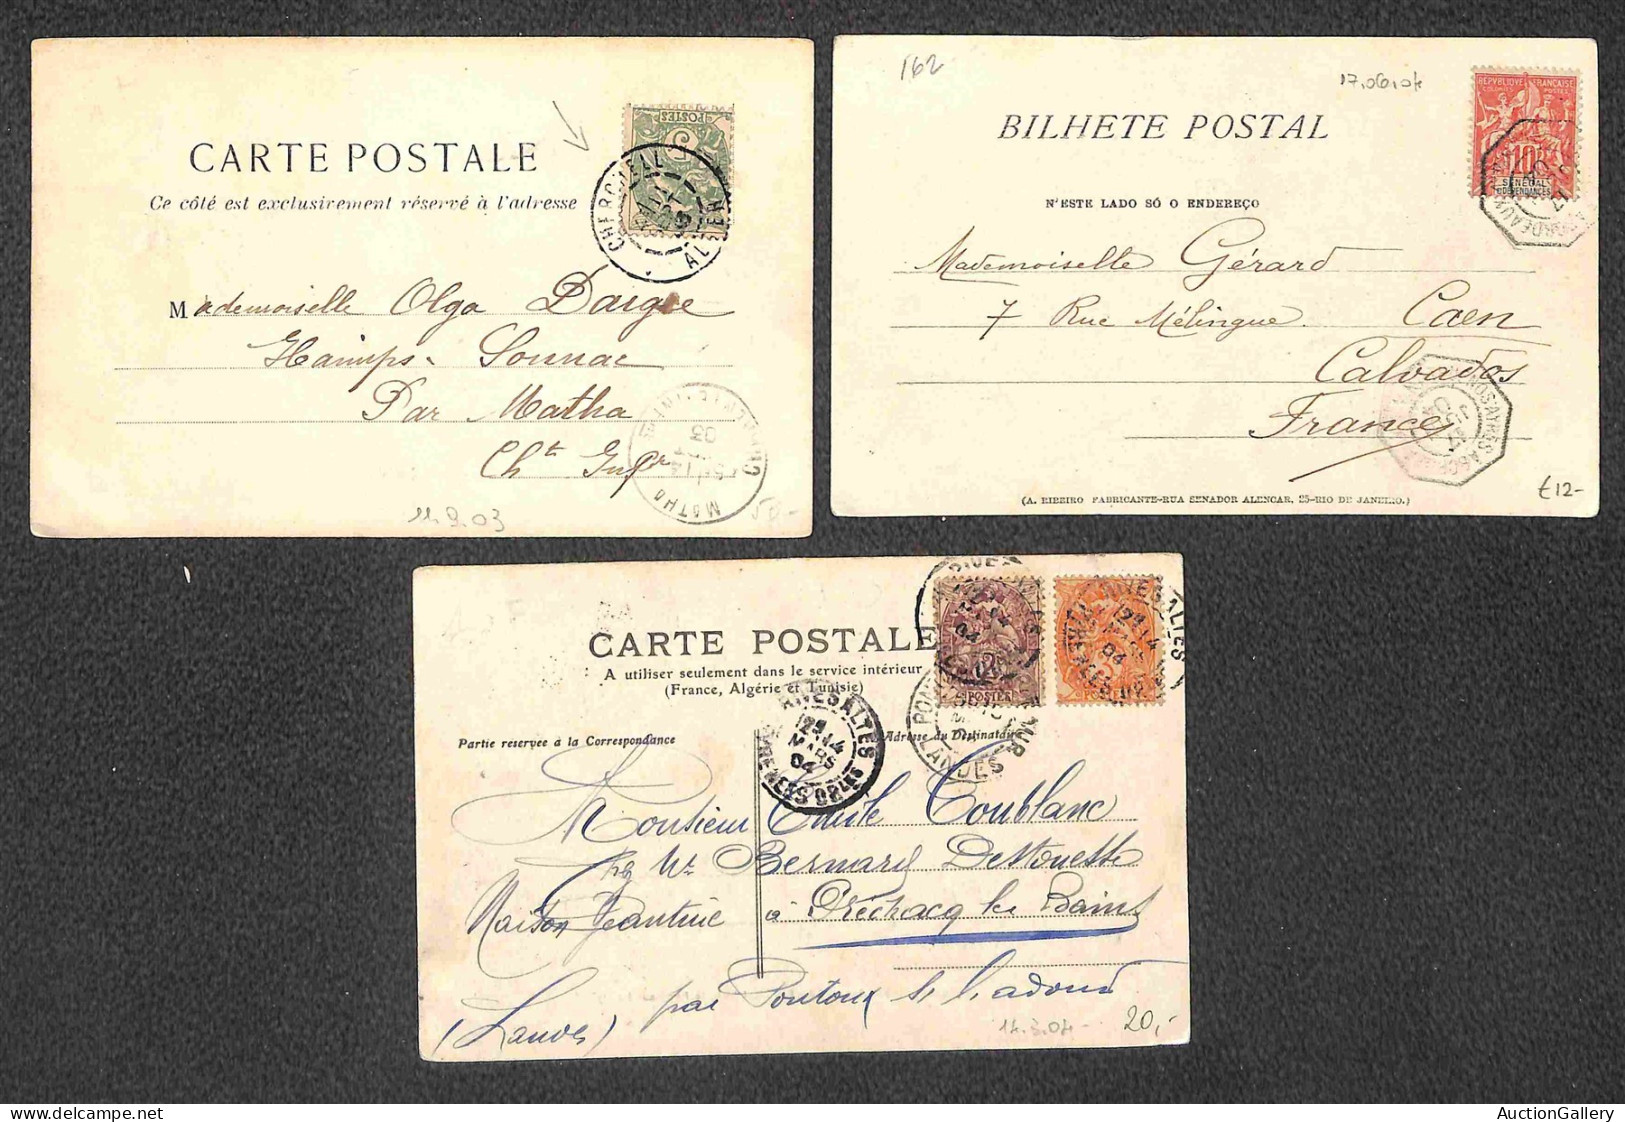 CARTE POSTALE
Ce côté est exclusivement réservé à l'adresse
POSTES
5
CHERCHELL
ALGER
Mademoiselle Olga Daigre
Haimps-Sonnac
Par Matha
Cht Infre
MATHA
03
11.9.03
162
17.06.04
BILHETE POSTAL
N'ESTE LADO SÓ O ENDEREÇO
REPVBLIQVE FRANÇAISE
COLONIES POSTES
10
SÉNÉGAL
ET DÉPENDANCES
Mademoiselle Gérard
7 Rue Mélingue. Caen
Calvados
France
(A. RIBEIRO FABRICANTE-RUA SENADOR ALENCAR, 25-RIO DE JANEIRO.)
€12-
CARTE POSTALE
A utiliser seulement dans le service intérieur
(France, Algérie et Tunisie)
POSTES
RIVESALTES
12 14
MARS
04
PYRÉNÉES ORLES
LANDES
Partie reservée à la Correspondance
Adresse du Destinataire
Monsieur Emile Toublanc
chez Mr Bernard Destouesse
Maison Jeantine à Préchacq les Bains
par Pontoux s. l'adour
(Landes)
14.3.04-
20,-
AuctionGallery